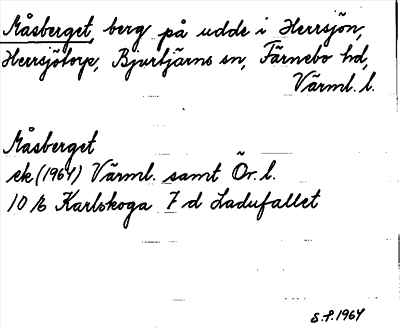 Måsberget, berg på udde i Herrsjön,
Herrsjötorp, Bjurtjärns sn, Färnebo hd,
Värml. l.
Måsberget
ek (1964) Värml. samt Ör. l.
10 E Karlskoga 7 d Ladufallet
S.F. 1964